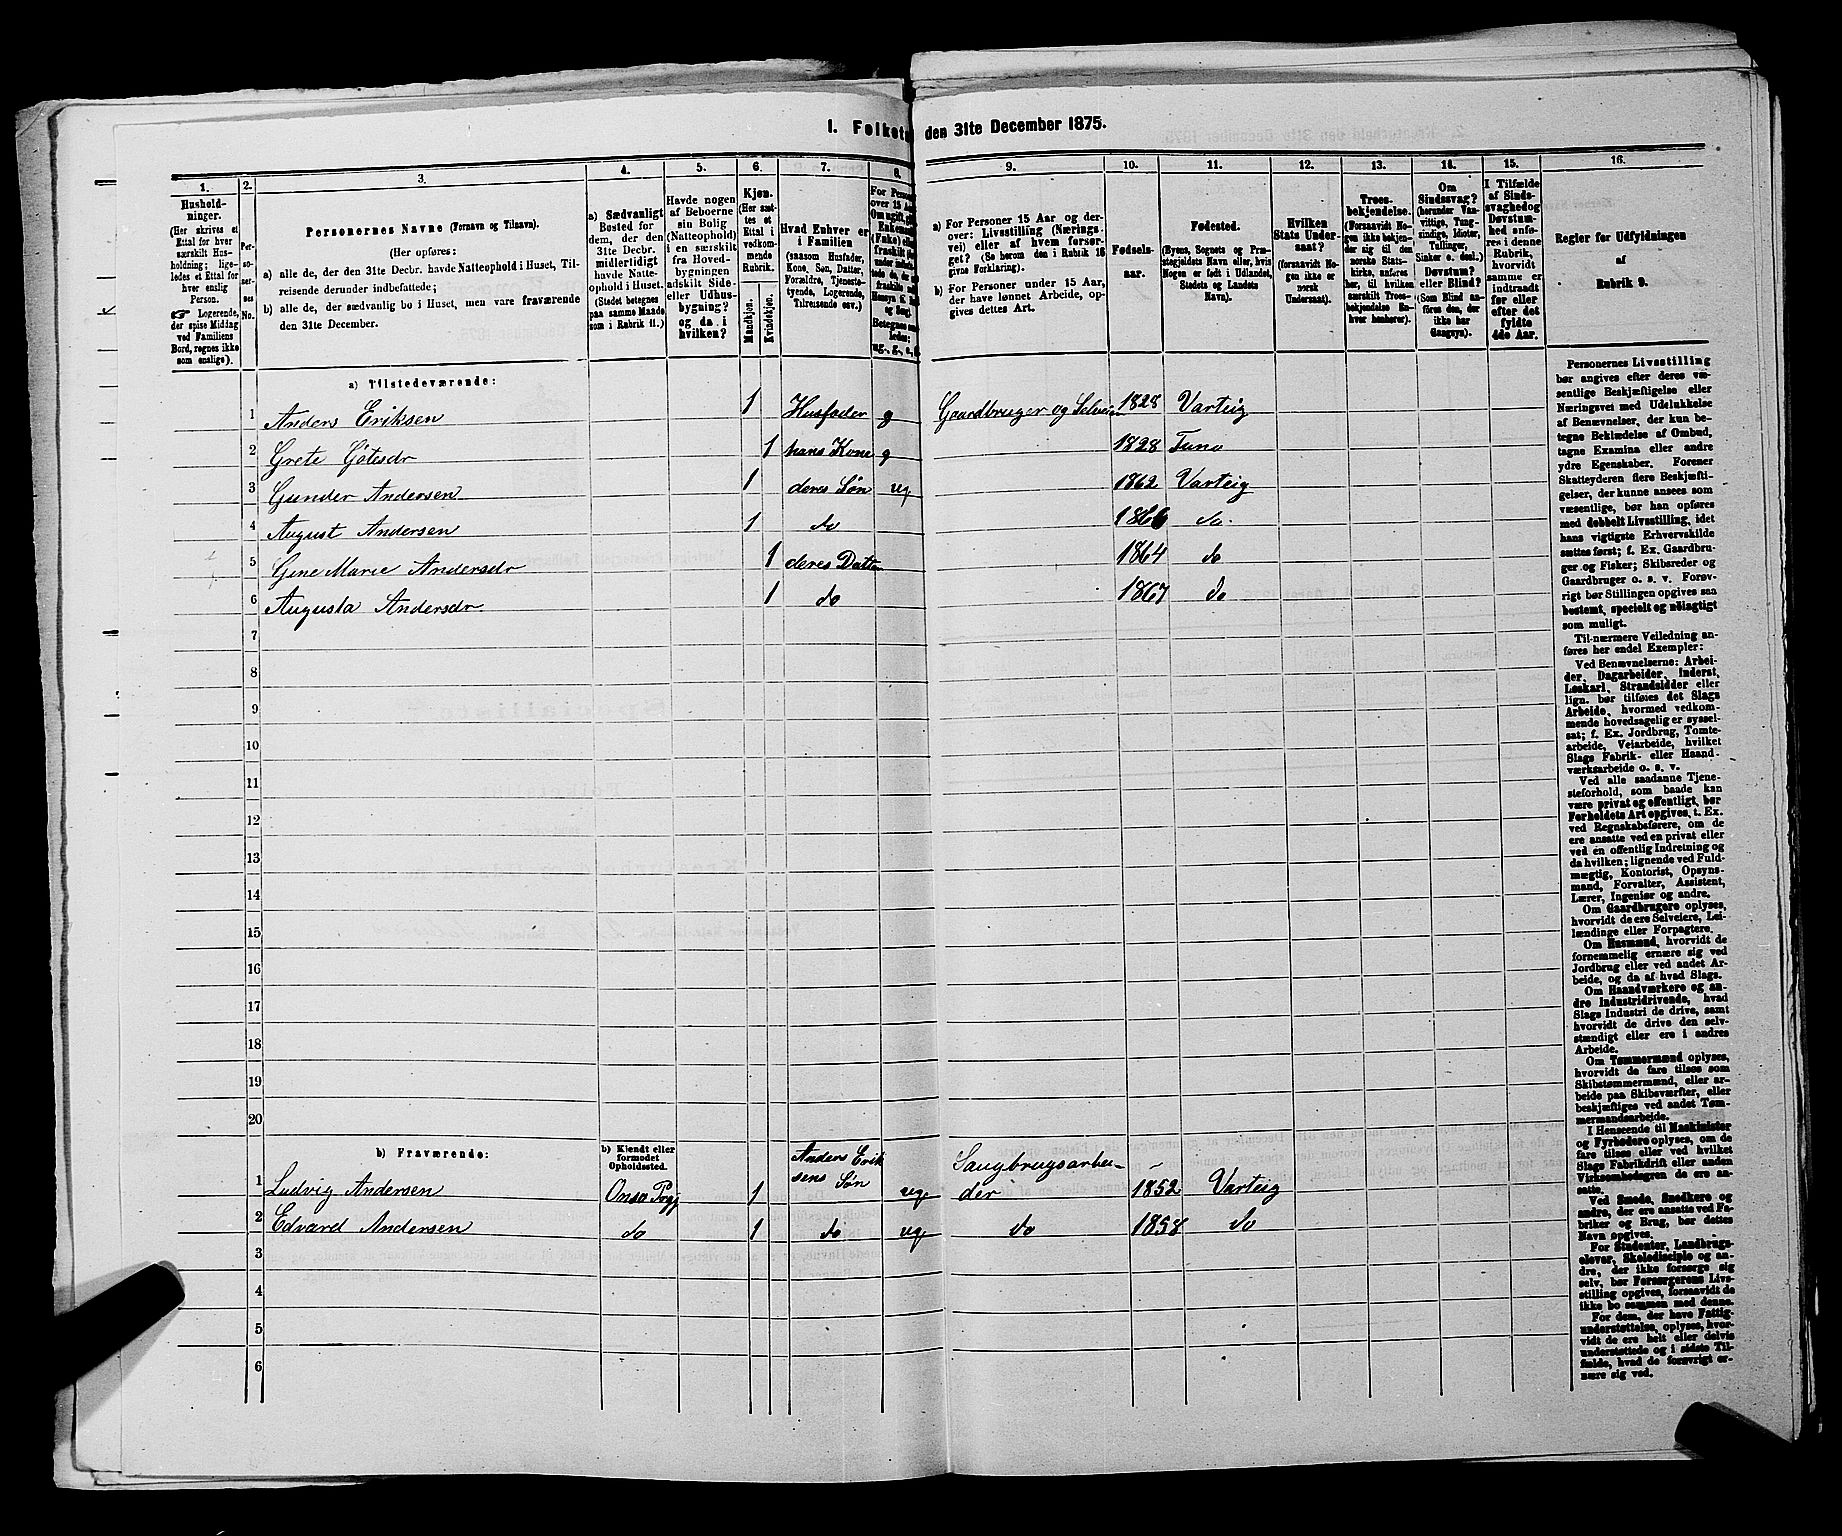 1. Folketæ den 31te December 1875.
1. 2. 3. 4. 5. 6. 7. 8. 9. 10. 11. 12. 13. 14. 15. 16.
Hushold-
ninger.
(Her skrives et
Ettal for hver
særskilt Hus-
holdning; lige-
ledes et Ettal for
hver enslig
Person.
Logerende,
der spise Middag
ved Familiens
Bord, regnes ikke
som enslige).
Per-
so-
ner-
nes
No.
Personernes Navne (Fornavn og Tilnavn).
(Her opføres:
a) alle de, der den 31te Decbr. havde Natteophold i Huset, Til-
reisende derunder indbefattede;
b) alle de, der sædvanlig bo i Huset, men vare fraværende
den 31te December.
a) Sædvanligt
Bosted for
dem, der den
31te Decbr.
midlertidigt
havde Natte-
ophold i Huset.
(Stedet betegnes
paa samme Maade
som i Rubrik 11.)
Havde nogen
af Beboerne
sin Bolig
(Natteophold)
i en særskilt
fra Hoved-
bygningen
adskilt Side-
eller Udhus-
bygning?
og da i
hvilken?
Kjøn.
(Her sæt-
tes et
Ettal i
vedkom-
mende
Rubrik.
Mandkjøn.
Kvindekjøn.
Hvad Enhver er
i Familien
(saasom Husfader,
Kone, Søn, Datter,
Forældre, Tjeneste-
tyende, Logerende,
Tilreisende osv.)
a) For Personer 15 Aar og der-
over: Livsstilling (Nærings-
vei) eller af hvem forsør-
get? (Se herom den i Rubrik 16
givne Forklaring).
b) For Personer under 15 Aar,
der have lønnet Arbeide, op-
gives dettes Art.
Fødsels-
aar.
Fødested.
(Byens, Sognets og Præ-
stegjeldets Navn eller, hvis
Nogen er født i Udlandet,
Stedets og Landets
Navn).
Hvilken
Stats Under-
saat?
(forsaavidt No-
gen ikke er
norsk
Undersaat).
Troes-
bekjendelse.
(Forsaavidt No-
gen ikke bekjen-
der sig til den
norske Stats-
kirke, anføres
her, til hvilken
særskilt Troes-
bekjendelse En-
hver henhører).
Om
Sindssvag?
(herunder Van-
vittige, Tung-
sindige, Idioter,
Tullinger,
Sinker o. desl.)
Døvstum?
eller Blind?
(Som Blind an-
føres den, der
ikke har
Gangsyn).
I Tilfælde
af Sinds-
svaghed og
Døvstum-
hed anfø-
res i denne
Rubrik,
hvorvidt
samme er
indtraadt
før eller
efter det
fyldte
4de Aar.
Regler for Udfyldningen
af
Rubrik 9.
a) Tilstedeværende:
1 Anders Eriksen 1 Husfader g Gaardbruger og Selveier 1828 Varteig
2 Grete Götesdr 1 hans Kone g 1828 Tuno
3 Gunder Andersen 1 deres Søn ug 1862 Varteig
4 August Andersen 1 do 1866 do
5 Gine Marie Andersdr 1 deres Datter 1864 do
6 Augusta Andersdr 1 do 1867 do
7
8
9
10
11
12
13
14
15
16
17
18
19
20
b) Fraværende:
b) Kjendt eller
formodet
Opholdssted.
1 Ludvig Andersen 1 Anders Erik
sens Søn ug Saugbrugsarbei-
der 1852 Varteig
2 Edvard Andersen do 1 do ug do 1858 do
3
4
5
6
Personernes Livsstilling
bør angives efter deres væ-
sentlige Beskjæftigelse eller
Næringsvei med Udelukkelse
af Benævnelser, der kun be-
tegne Beklædelse af Ombud,
tagne Examina eller andre
ydre Egenskaber. Forener
Skatteyderen flere Beskjæfti-
gelser, der kunne ansees som
væsentlige, bør han opføres
med dobbelt Livsstilling, idet
hans vigtigste Erhvervskilde
sættes først; f. Ex. Gaardbru-
ger og Fisker; Skibsreder og
Gaardbruger o. s. v. Forøv-
rigt bør Stillingen opgives saa
bestemt, specielt og nøiagtigt
som muligt.
Til nærmere Veiledning an-
føres her endel Exempler:
Ved Benævnelserne: Arbei-
der, Dagarbeider, Inderst,
Løskarl, Strandsidder eller
lign. bør tilføres det Slags
Arbeide, hvormed vedkom-
mende hovedsagelig er syssel-
sat; f. Ex. Jordbrug, Tomte-
arbeide, Veiarbeide, hvilket
Slags Fabrik- eller Haand-
værksarbeide o. s. v.
Ved alle saadanne Tjene-
steforhold, som baade kan
være privat og offentligt, bør
Forholdets Art opgives, t. Ex.
ved Regnskabsførere, om de
ere ansatte ved en privat eller
ved en offentlig Indretning og
da hvilken; lignende ved Fuld-
mægtig, Kontorist, Opsyns-
mand, Forvalter, Assistent,
Lærer, Ingeniør og andre.
Om Gaardbrugere oplyses,
hvorvidt de ere Selveiere, Lei-
lændinge eller Forpagtere.
Om Husmænd, hvorvidt de
fornemmelig ernære sig ved
Jordbrug eller ved andet Ar-
beide, og da af hvad Slags.
Om Haandværkere og an-
dre Industridrivende, hvad
Slags Industri de drive, samt
hvorvidt de drive den selv-
stændigt eller ere i andres
Arbeide.
Om Tømmermænd oplyses,
hvorvidt de fare tilsøs som
Skibstømmermænd, eller ar-
beide paa Skibsværfter, eller
beskjæftiges ved andet Tøm-
mermandsarbeide.
I Henseende til Maskinister
og Fyrbødere oplyses, om de
fare tilsøs eller ved hvilket
Slags Fabrikdrift eller anden
Virksomhedsgren de ere an-
satte.
Ved Smede, Snedkere og
andre, der ere ansatte ved Fa-
briker og Brug, bør dettes
Navn opgives.
For Studenter, Landbrugs-
elever, Skoledisciple og an-
dre, der ikke forsørge sig
selv, bør Forsørgerens Livs-
stilling opgives, forsaavidt de
ikke bo sammen med denne.
For dem, der have Fattig-
understøttelse, oplyses, hvor-
vidt de ere helt eller delvis
understøttede og i sidste Til-
fælde, hvad de forøvrigt er-
nære sig ved.